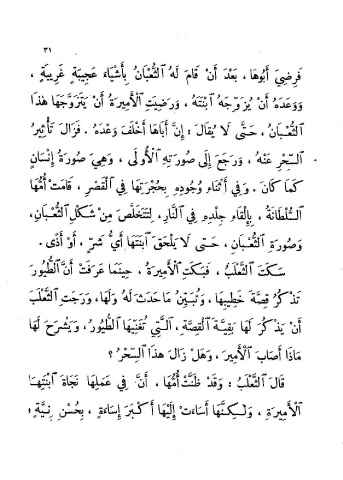 ٣١
فَرَضِيَ أَبُوهَا ، بَعْدَ أَنْ قَامَ لَهُ الثُّعْبَانُ بِأَشْيَاءَ عَجِيبَةٍ غَرِيبَةٍ ،
وَوَعَدَهُ أَنْ يُزَوِّجَهُ ابْنَتَهُ ، وَرَضِيَتِ الْأَمِيرَةُ أَنْ يَتَزَوَّجَهَا هٰذَا
الثُّعْبَانُ ، حَتَّى لَا يُقَالَ : إِنَّ أَبَاهَا أَخْلَفَ وَعْدَهُ . فَزَالَ تَأْثِيرُ
السِّحْرِ عَنْهُ ، وَرَجَعَ إِلَى صُورَتِهِ الْأُولَى ، وَهِيَ صُورَةُ إِنْسَانٍ
كَمَا كَانَ . وَفِي أَثْنَاءِ وُجُودِهِ بِحُجْرَتِهَا فِي الْقَصْرِ ، قَامَتْ أُمُّهَا
السُّلْطَانَةُ ، بِإِلْقَاءِ جِلْدِهِ فِي النَّارِ ، لِتَتَخَلَّصَ مِنْ شَكْلِ الثُّعْبَانِ ،
وَصُورَةِ الثُّعْبَانِ ، حَتَّى لَا يَلْحَقَ ابْنَتَهَا أَيُّ شَرٍّ ، أَوْ أَذًى .
سَكَتَ الثَّعْلَبُ ، فَبَكَتِ الْأَمِيرَةُ ، حِينَمَا عَرَفَتْ أَنَّ الطُّيُورَ
تَذْكُرُ قِصَّةَ خَطِيبِهَا ، وَتُبَيِّنُ مَا حَدَثَ لَهُ وَلَهَا ، وَرَجَتِ الثَّعْلَبَ
أَنْ يَذْكُرَ لَهَا بَقِيَّةَ الْقِصَّةِ ، الَّتِي تُغَنِّيهَا الطُّيُورُ ، وَيَشْرَحَ لَهَا
مَاذَا أَصَابَ الْأَمِيرَ ، وَهَلْ زَالَ هٰذَا السِّحْرُ ؟
قَالَ الثَّعْلَبُ : وَقَدْ ظَنَّتْ أُمُّهَا ، أَنَّ فِي عَمَلِهَا نَجَاةَ ابْنَتِهَا
الْأَمِيرَةِ ، وَلٰكِنَّهَا أَسَاءَتْ إِلَيْهَا أَكْبَرَ إِسَاءَةٍ ، بِحُسْنِ نِيَّةٍ ؛